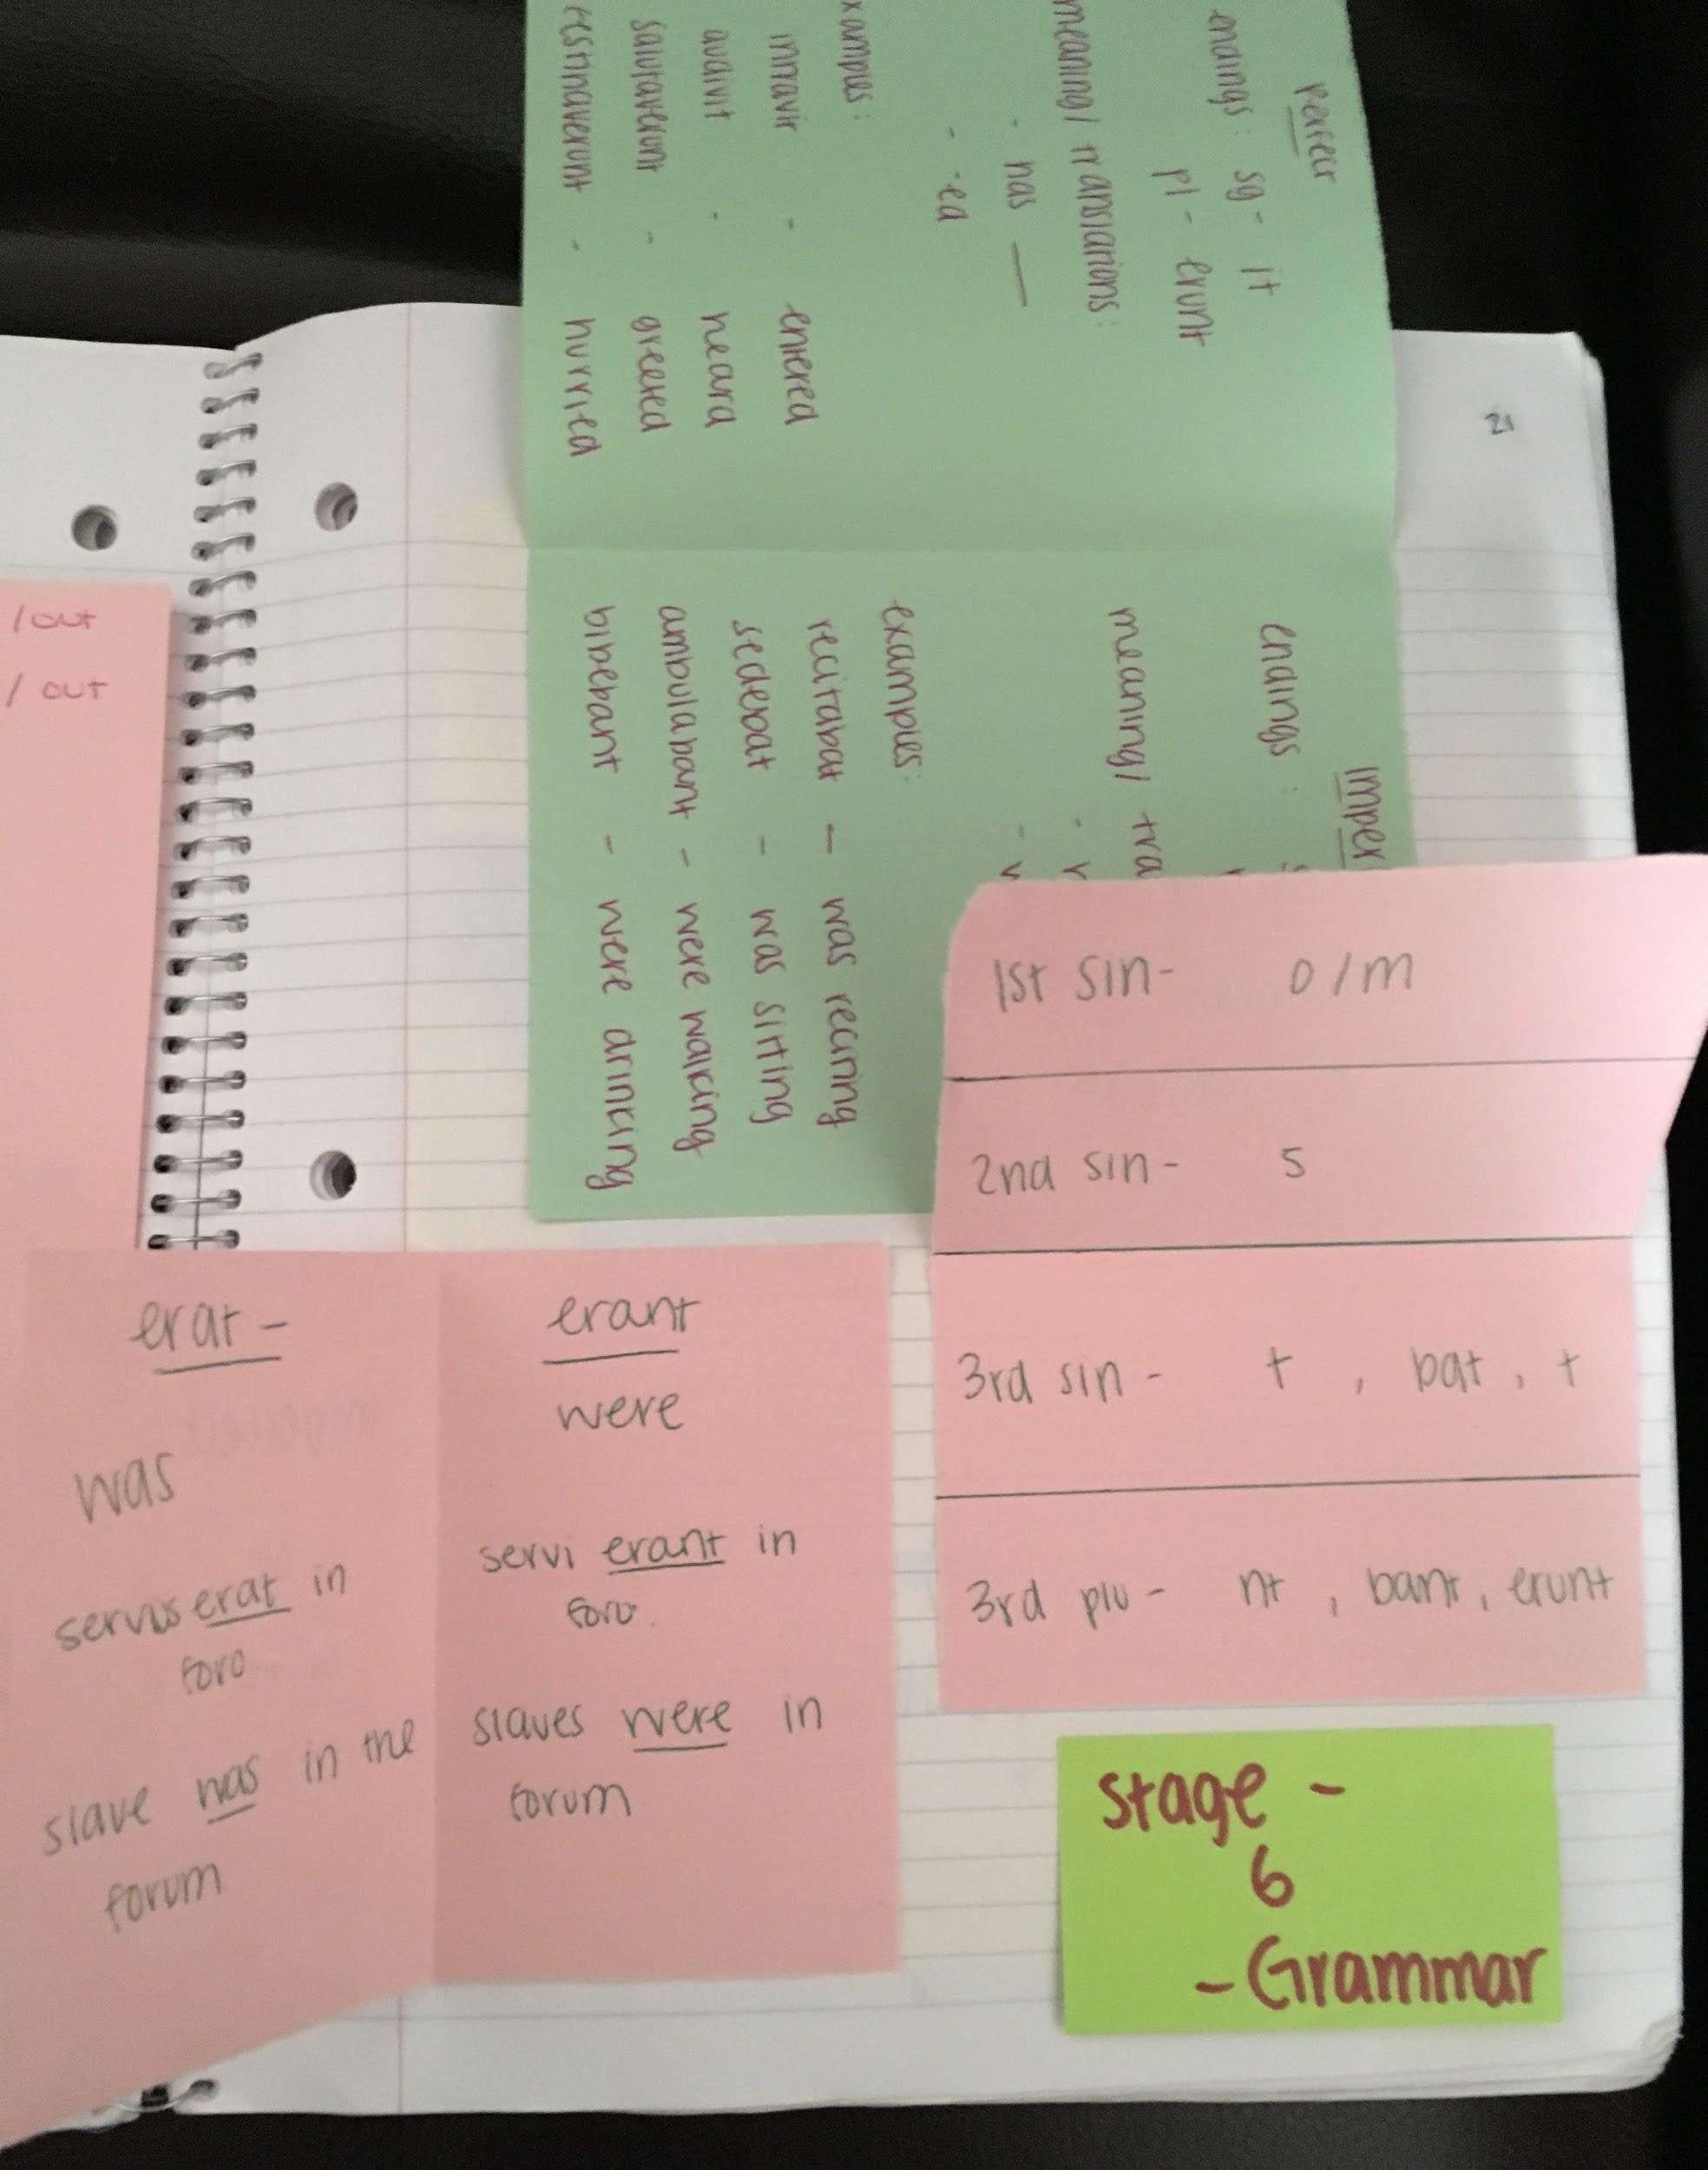 Perfect
endings: sg- it
pl- erunt
meaning/ translations:
- has —
- -ed
xamples:
intravit - entered
audivit - heard
salutaverunt - greeted
festinaverunt - hurried
21
imper
endings:
meaning/ tra
examples:
recitabat - was reciting
sedebat - was sitting
ambulabant - were walking
bibebant - were drinking
/out
/ out
1st sin- o/m
2nd sin- s
3rd sin- t, bat, t
3rd plu- nt, bant, erunt
erat -
was
servus erat in
foro
slave was in the
forum
erant
were
servi erant in
foro.
slaves were in
forum
stage -
6
- Grammar